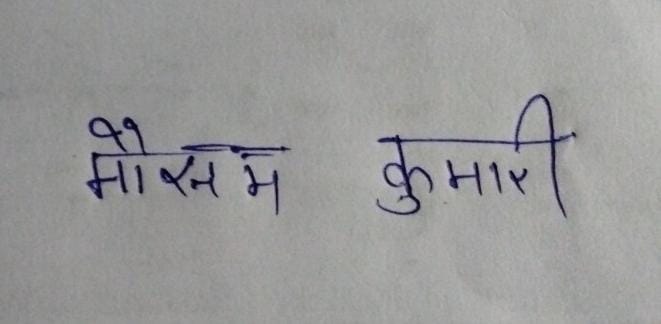 मौसम कुमारी